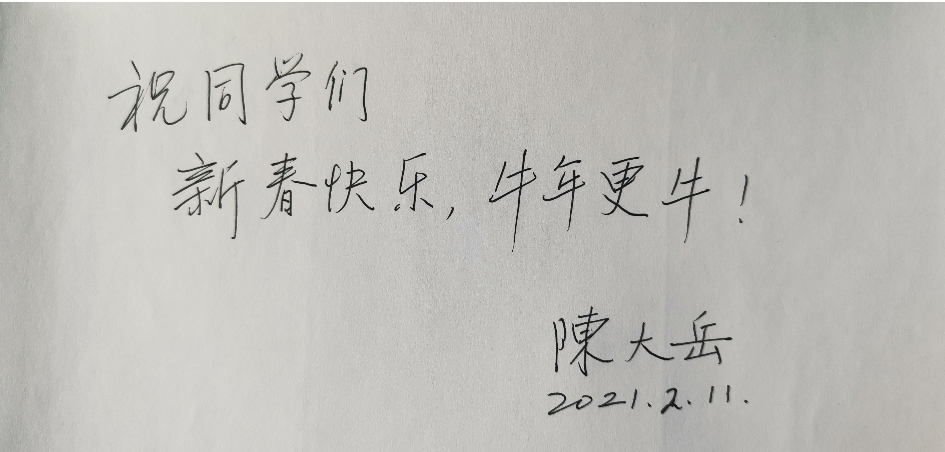 祝同学们
新春快乐，牛年更牛！
陳大岳
2021.2.11.